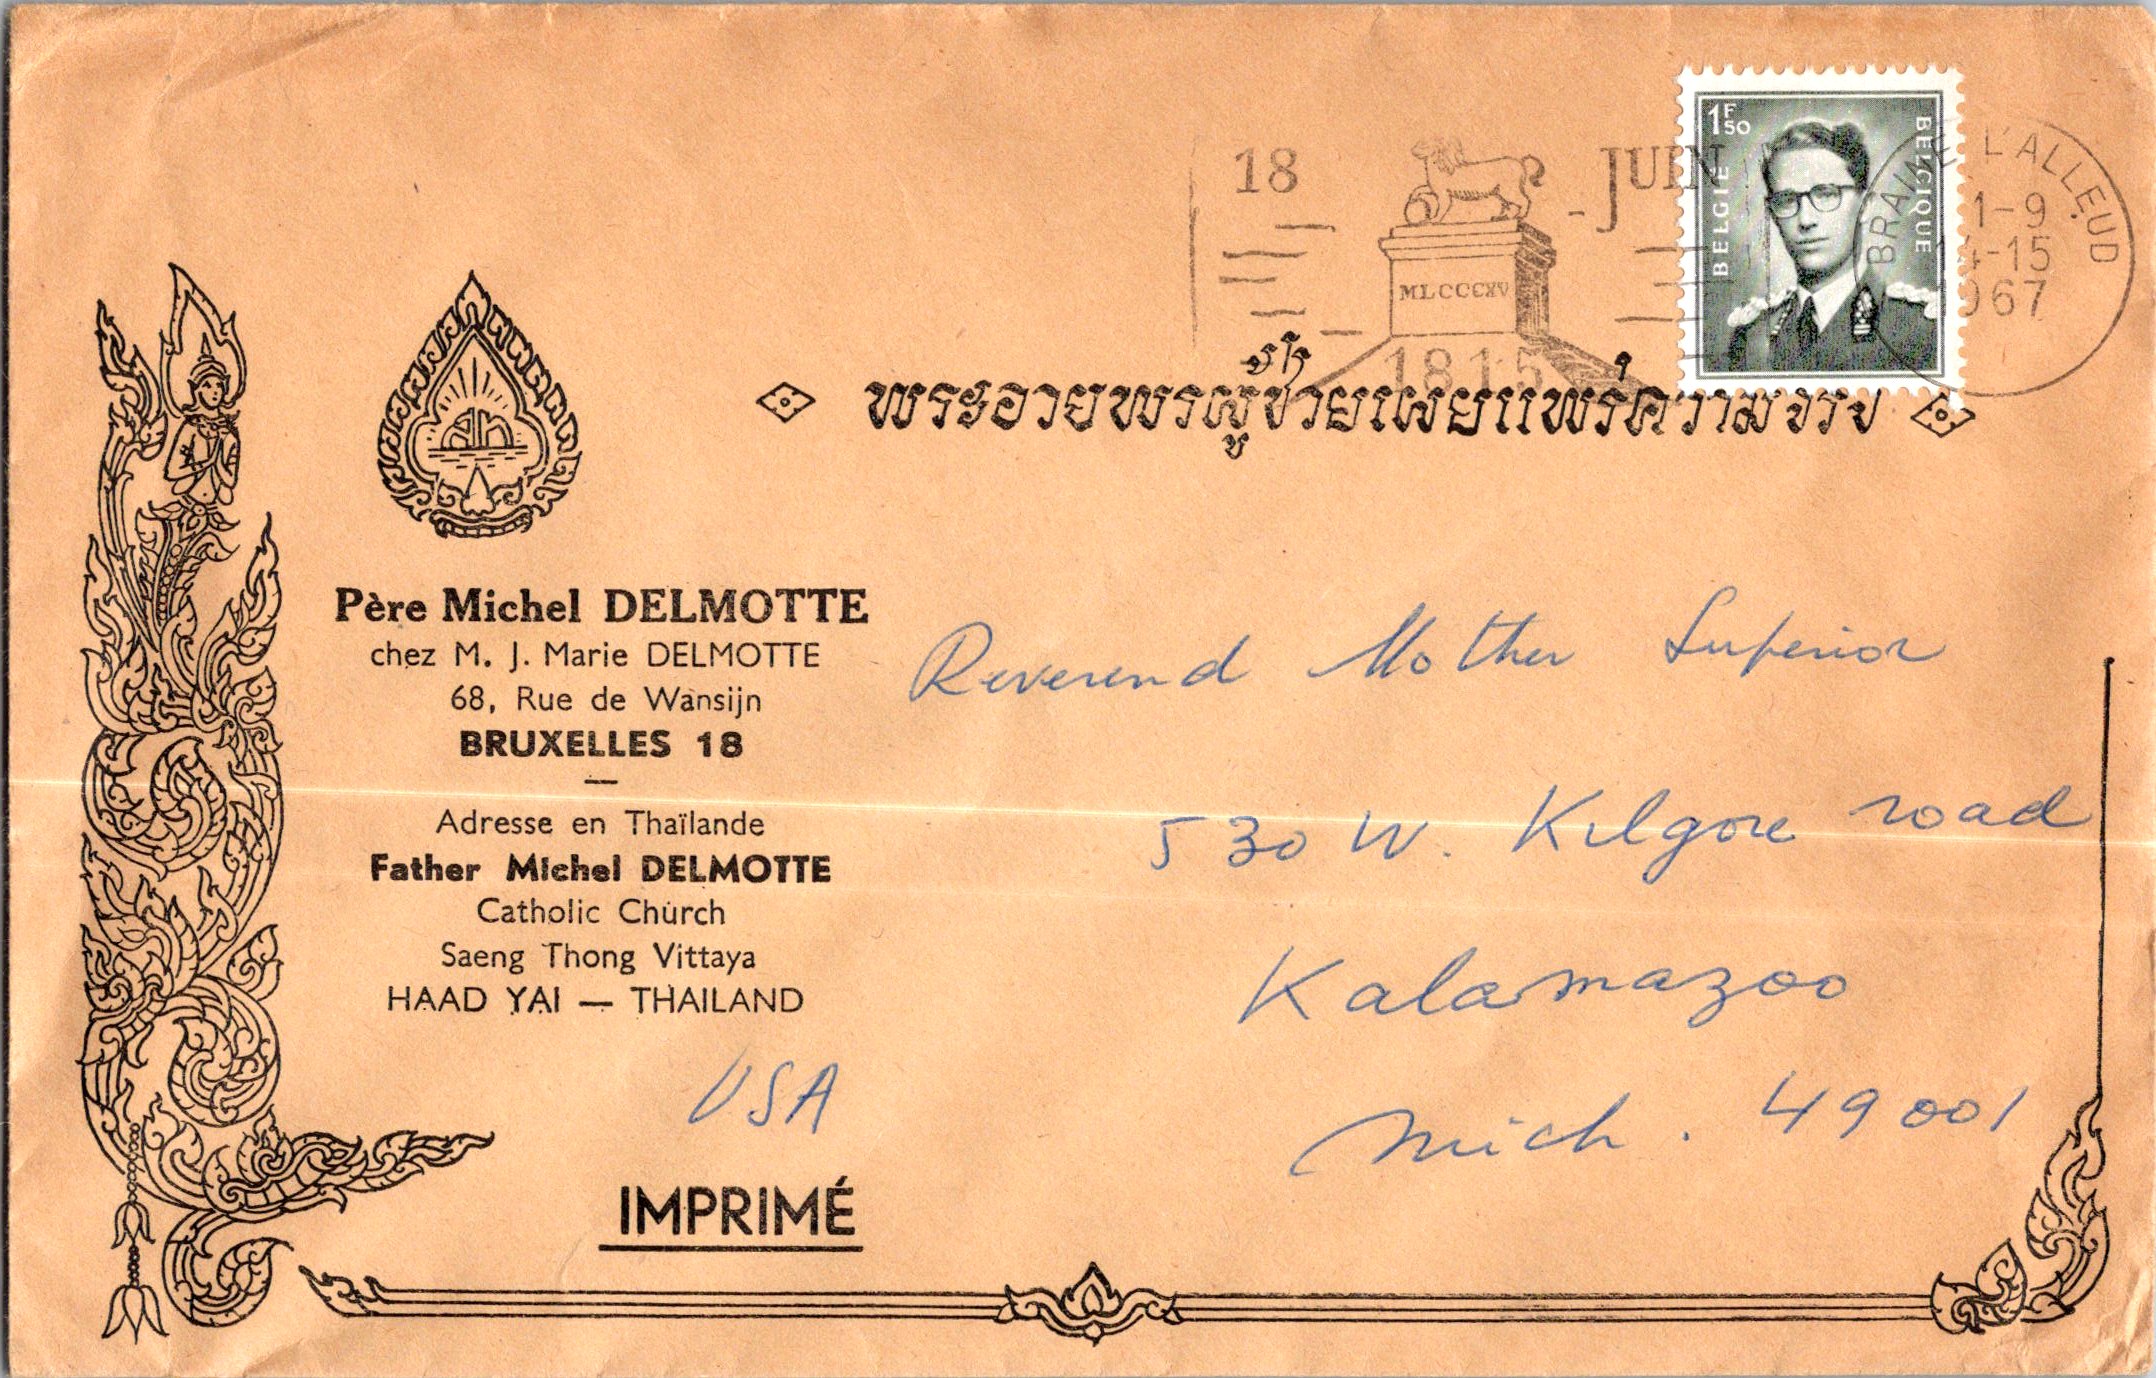 18 - JUIN
MLCCCXV
1815
1F50
BELGIË
BELGIQUE
BRAINE L'ALLEUD
1-9
14-15
1967
พระอวยพรผู้ช่วยเผยแพร่ความจริง
Père Michel DELMOTTE
chez M. J. Marie DELMOTTE
68, Rue de Wansijn
BRUXELLES 18
—
Adresse en Thaïlande
Father Michel DELMOTTE
Catholic Church
Saeng Thong Vittaya
HAAD YAI — THAILAND
Reverend Mother Superior
530 W. Kilgore road
Kalamazoo
Mich. 49001
USA
IMPRIMÉ